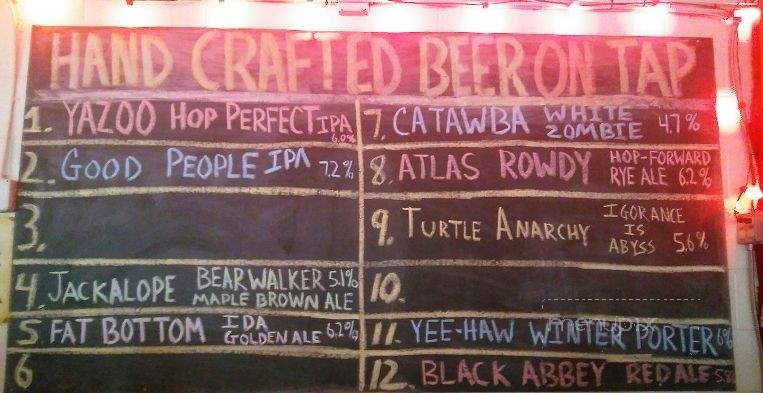 HAND CRAFTED BEER ON TAP
1. YAZOO HOP PERFECT IPA 6.0%
2. GOOD PEOPLE IPA 7.2%
3.
4. JACKALOPE BEARWALKER 5.1%
MAPLE BROWN ALE
5. FAT BOTTOM IDA
GOLDEN ALE 6.2%
6
7. CATAWBA WHITE
ZOMBIE 4.7%
8. ATLAS ROWDY HOP-FORWARD
RYE ALE 6.2%
9. TURTLE ANARCHY IGORANCE
IS
ABYSS 5.6%
10.
11. YEE-HAW WINTER PORTER 6%
12. BLACK ABBEY RED ALE